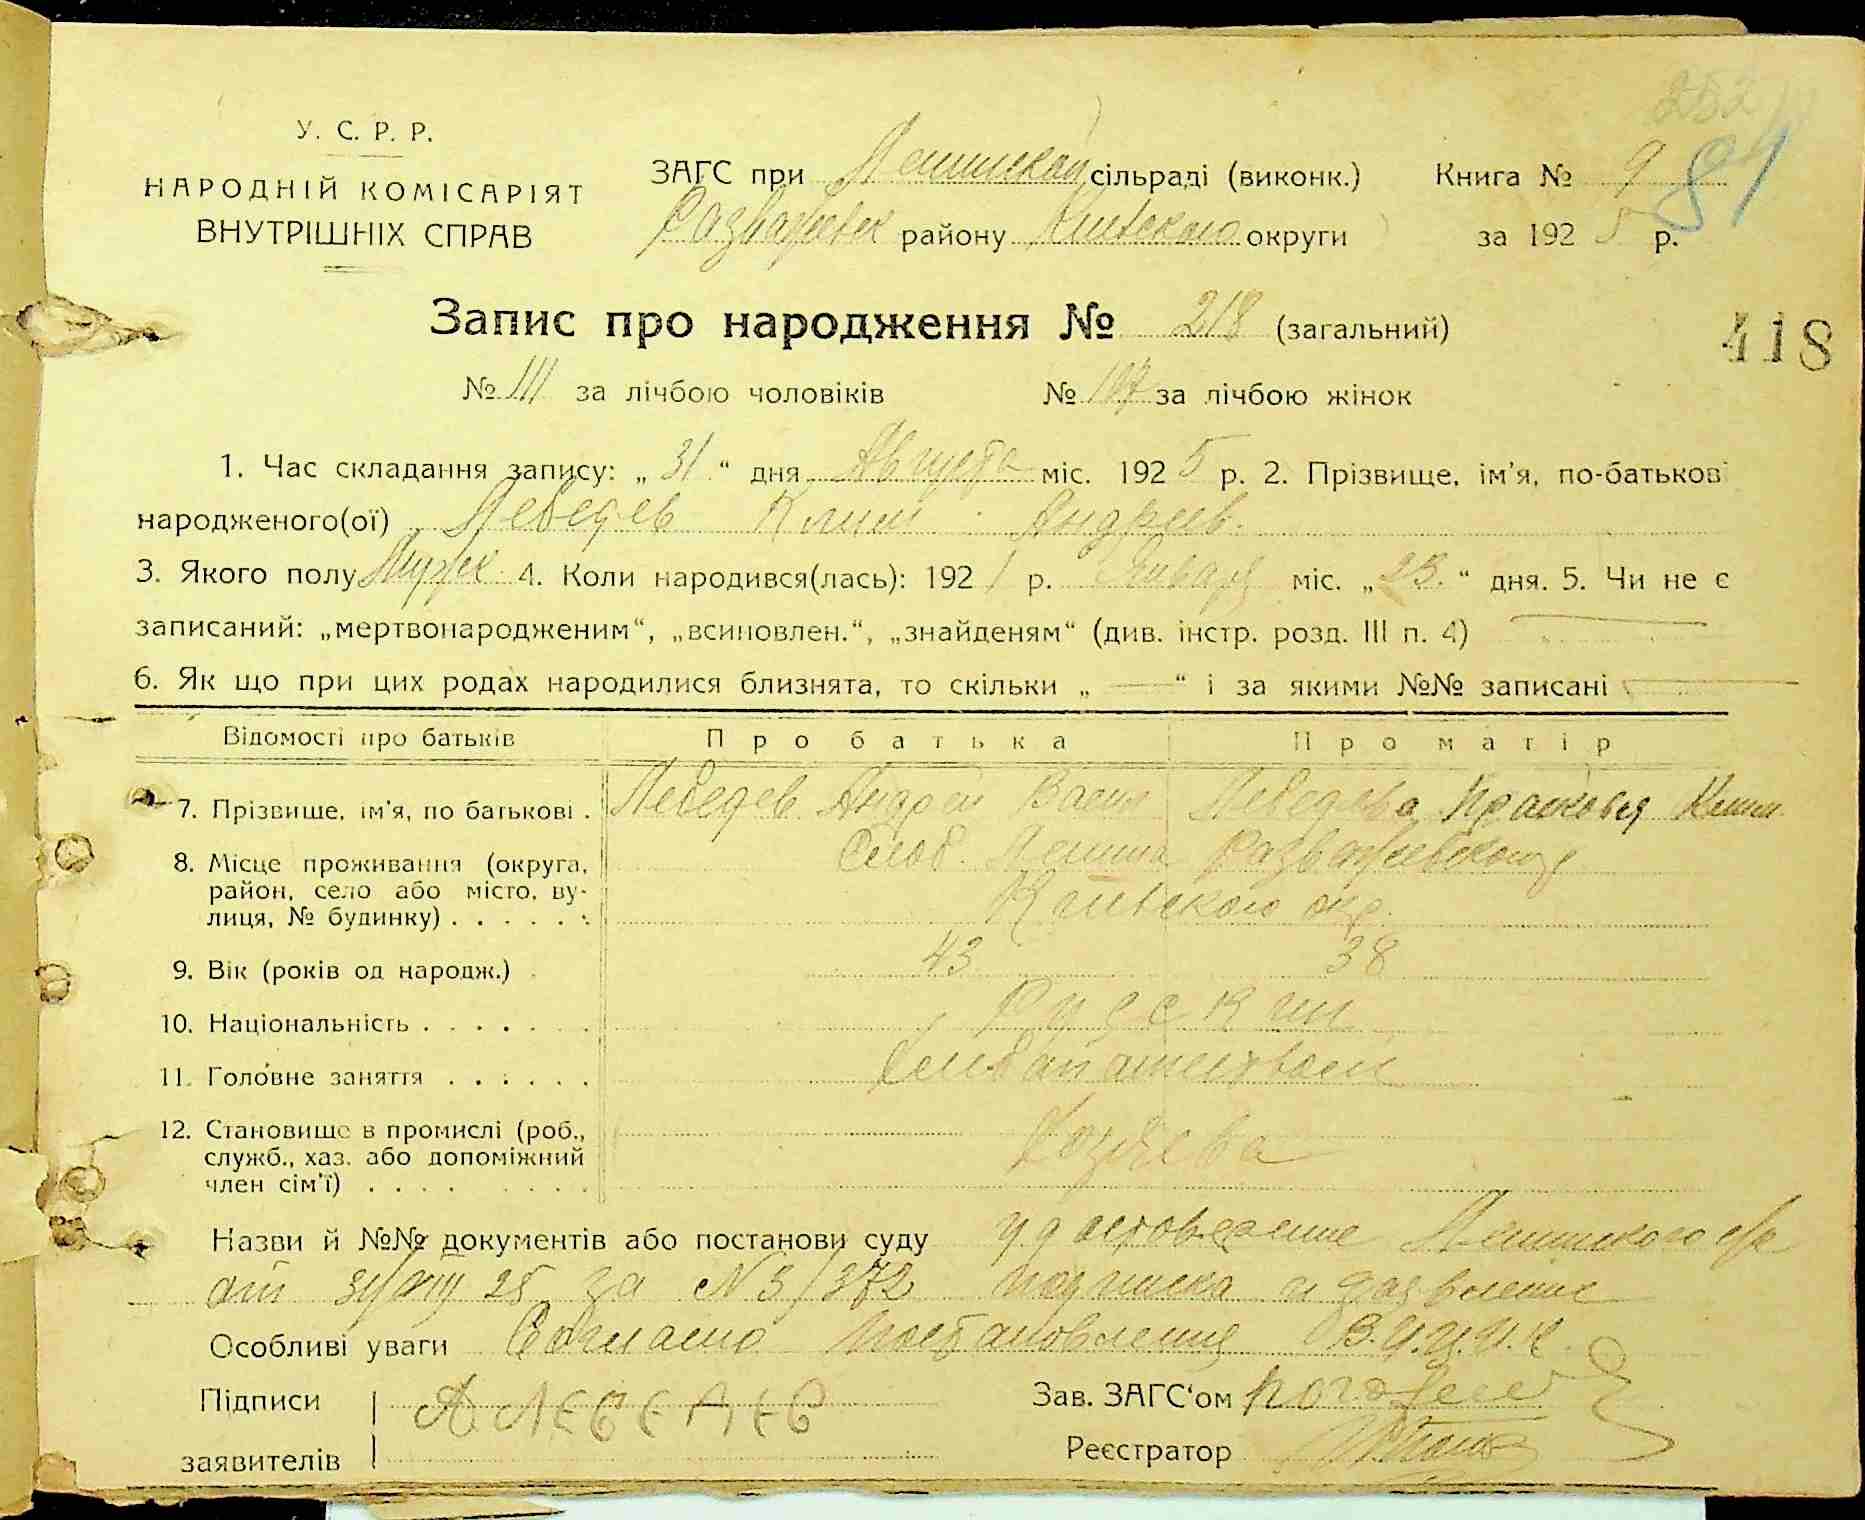 252
У. С. Р. Р.
НАРОДНІЙ КОМІСАРІЯТ
ВНУТРІШНІХ СПРАВ
ЗАГС при Ленинской сільраді (виконк.) Книга № 9 84
Розважевск району Киевского округи за 1925 р.
Запис про народження № 218 (загальний)
418
№ 111 за лічбою чоловіків № 107 за лічбою жінок
1. Час складання запису: „31“ дня Августа міс. 1925 р. 2. Прізвище, ім'я, по-батькові
народженого(ої) Лебедев Клим Андреев.
3. Якого полу Мужск 4. Коли народився(лась): 1921 р. Января міс. „23.“ дня. 5. Чи не є
записаний: „мертвонародженим“, „всиновлен.“, „знайденям“ (див. інстр. розд. III п. 4)
6. Як що при цих родах народилися близнята, то скільки „—“ і за якими №№ записані
Відомості про батьків Про батька Про матір
7. Прізвище, ім'я, по батькові . Лебедев Андрей Васил Лебедева Прасковья Клим.
8. Місце проживання (округа, Слоб. Ленина Розважевского р
район, село або місто, ву-
лиця, № будинку) . . . . . . Киевского окр.
9. Вік (років од народж.) 43 38
10. Національність . . . . . . . Русский
11. Головне заняття . . . . . . Хлебопашеством
12. Становище в промислі (роб.,
служб., хаз. або допоміжний Хозяева
член сім'ї) . . . . . . . . .
Назви й №№ документів або постанови суду удостоверение Ленинского с/р
от 31/VIII 25 за № 3/372 подписка и заявление
Особливі уваги Согласно постановления В.У.Ц.И.К.
Підписи А Лебедев Зав. ЗАГС'ом
заявителів Реєстратор